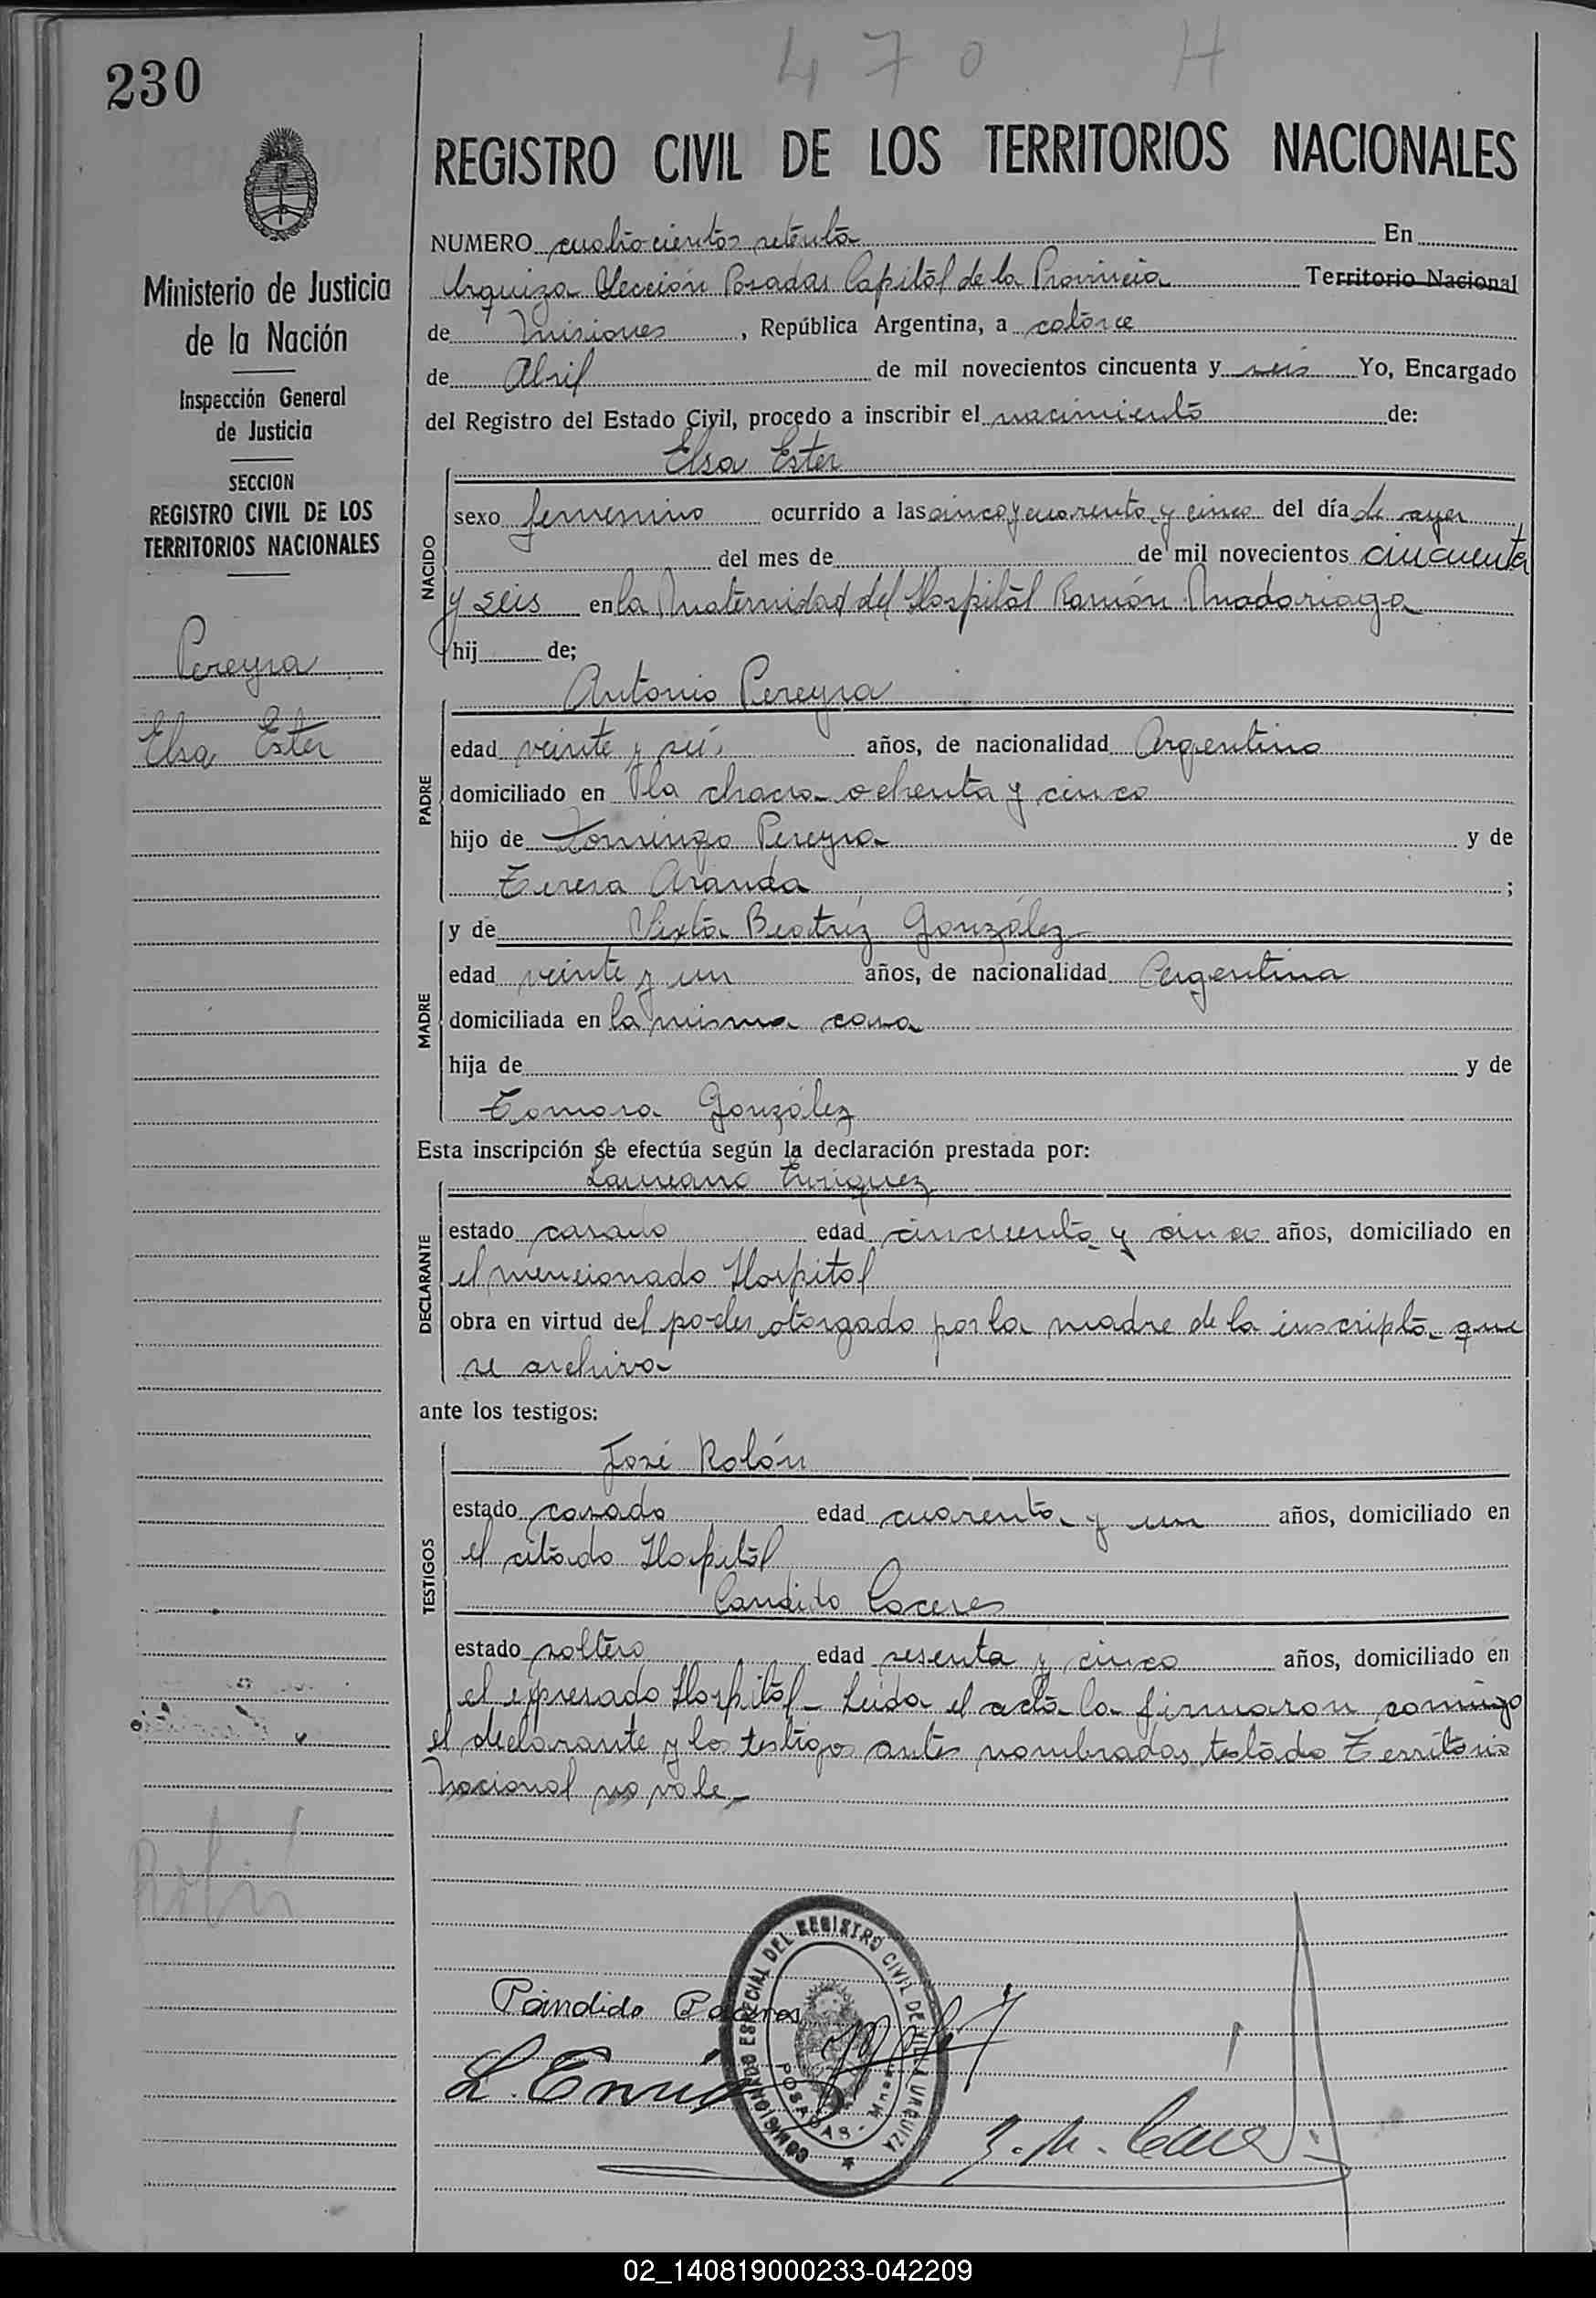 470 H
230
REGISTRO CIVIL DE LOS TERRITORIOS NACIONALES
Ministerio de Justicia
de la Nación
Inspección General
de Justicia
SECCION
REGISTRO CIVIL DE LOS
TERRITORIOS NACIONALES
Pereyra
Elsa Ester
NUMERO cuatrocientos setenta En
Urquiza Sección Posadas Capital de la Provincia Territorio Nacional
de Misiones, República Argentina, a catorce
de Abril de mil novecientos cincuenta y seis Yo, Encargado
del Registro del Estado Civil, procedo a inscribir el nacimiento de:
Elsa Ester
NACIDO
sexo femenino ocurrido a las cinco y cuarenta y cinco del día de ayer
del mes de de mil novecientos cincuenta
y seis en la Maternidad del Hospital Ramón Madariaga
hij de;
Antonio Pereyra
PADRE
edad veinte y seis años, de nacionalidad Argentino
domiciliado en la chacra ochenta y cinco
hijo de Domingo Pereyra y de
Teresa Aranda ;
MADRE
y de Sixta Beatríz González
edad veinte y un años, de nacionalidad Argentina
domiciliada en la misma casa
hija de y de
Tomasa González
Esta inscripción se efectúa según la declaración prestada por:
Laureano Enriquez
DECLARANTE
estado casado edad cincuenta y cinco años, domiciliado en
el mencionado Hospital
obra en virtud del poder otorgado por la madre de la inscripta que
se archiva
ante los testigos:
José Rolón
TESTIGOS
estado casado edad cuarenta y un años, domiciliado en
el citado Hospital
Candido Caceres
estado soltero edad sesenta y cinco años, domiciliado en
el expresado Hospital - Leida el acta la firmaron conmigo
el declarante y los testigos antes nombrados, testado Territorio
Nacional no vale -
COMISIONADO ESPECIAL DEL REGISTRO CIVIL DE VILLA URQUIZA
POSADAS - Mnes
Cándido Caceres
L. Enriq
02_140819000233-042209